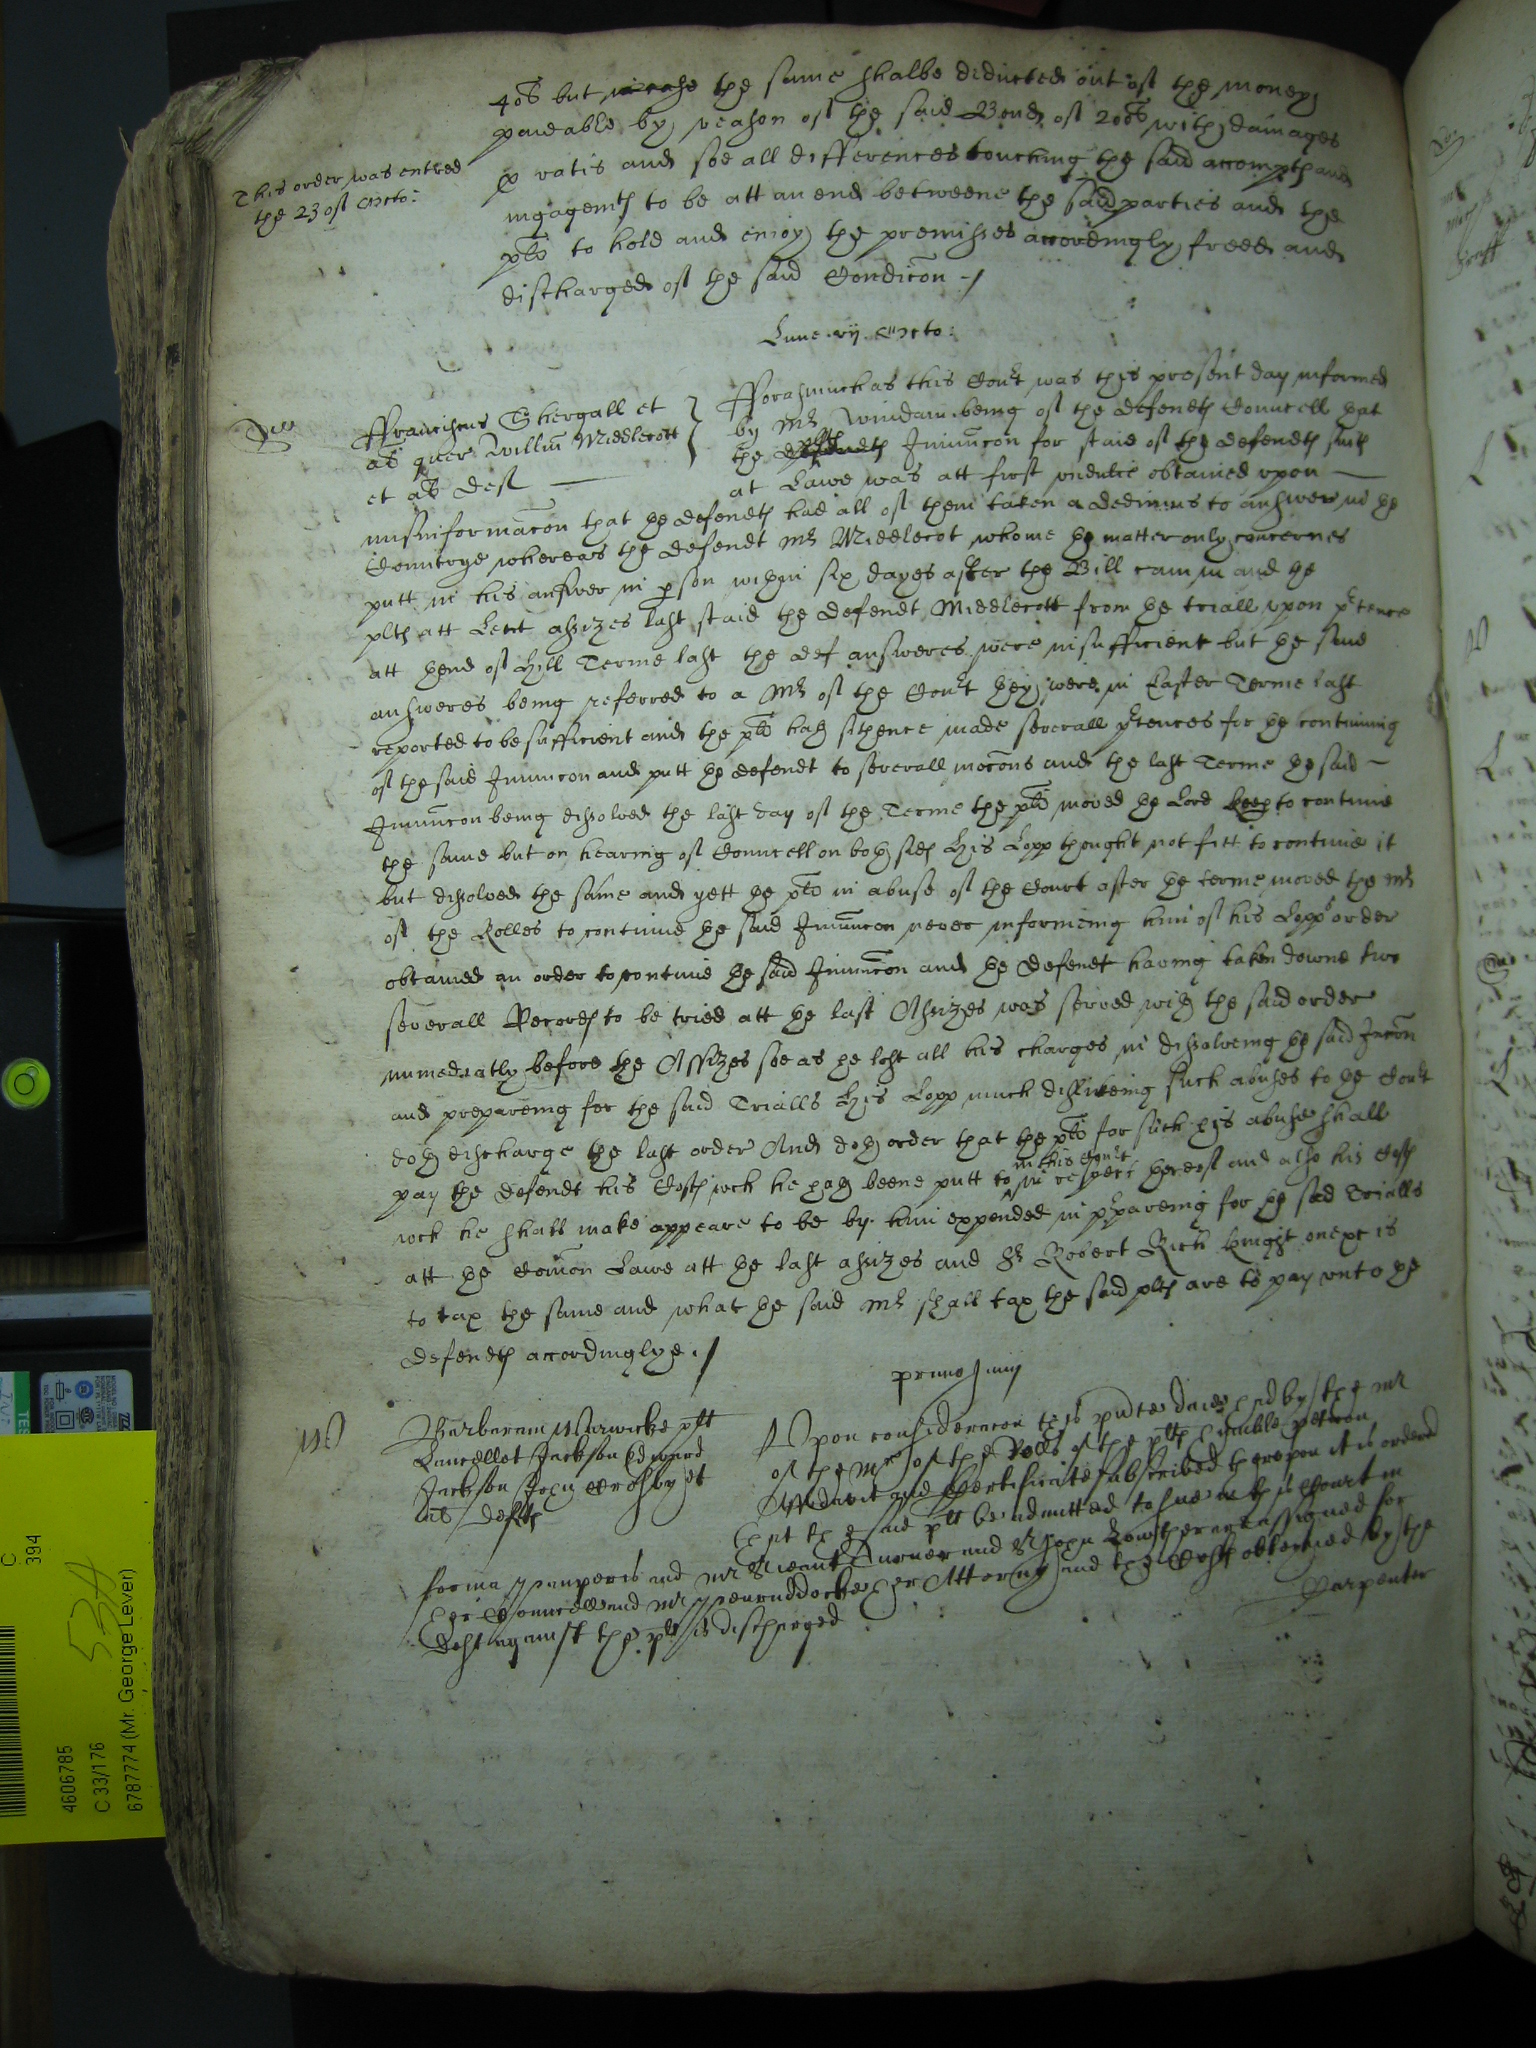 40s but in case the same shalbe deducted out of the money
payeable by reason of the said Bond of 200s with damages
p ratis and soe all differences touching the said accompth and
ingagemth to be att an end betweene the said parties and the
plt to hold and enioy the premisses accordingly freed and
discharged of the said Condicon ./
This order was entred
the 23 of Octo:
Lune .vij. Octo:
Franciscus Shergall et
als quer Willm Middlecott
et als def
fforasmuch as this Court was this present day informed
by Mr Windam being of the defendth Councell that
the plth Iniuncon for staie of the defendth suite
at Lawe was att first vnduelie obtained vpon
misinformacon that the defendth had all of them taken a dedimus to answere in the
Countrye whereas the defendt Mr Middlecot whome the matter only concernes
putt in his answer in pson within six dayes after the Bill cam in and the
plth att Lent assizes last staid the defendt Middlecott from the triall vpon ptence
att thend of Hill Terme last the def answeres were insufficient but the said
answeres being referred to a Mr of the Court they were in Easter Terme last
reported to be sufficient and the plt hath sithence made severall ptences for the continuing
of the said Iniuncon and putt the defendt to severall mocons and the last Terme the said
Iniuncon being dissolved the last day of the Terme the plt moved the Lord Keep to continue
the same but on hearing of Councell on both sides His Lopp thought not fitt to continue it
but dissolved the same and yett the plt in abuse of the Court after the terme moved the Mr
of the Rolles to continue the said Iniuncon never informeing him of his Lopps order
obtained an order to continue the said Iniuncon and the defendt having taken downe two
severall Recordes to be tried att the last Assizes was served with the said order
immediatly before the Assizes soe as he lost all his charges in dissolveing the said Incon
and prepareing for the said Trialls His Lopp much disliking such abuses to the Court
doth discharge the last order And doth order that the plt for such his abuse shall
in this Court
pay the defendt his Costs wch he hath beene putt to in respect thereof and also his Costs
wch he shall make appeare to be by him expended in ppareing for the said Trialls
att the Comon Lawe att the last assizes and Sr Robert Rich knight one &c is
to tax the same and what the said Mr shall tax the said plth are to pay vnto the
defendth accordinglye ./
primo Junij
Barbaram Warwicke plt
Lancellot Jackson Edward
Jackson John Crosby et
als defts
Vpon consideracon this pnte daie had by the mr
of the Mr of the Rolls of the plth humble peticon
Affidavit and Certificate subscribed therevpon it is ordered
that the said plt be admitted to sue in this Court in
forma pauperis and mr Turner and Mr John Lowther are assigned for
her Councell and mr her Attorney and the Costs obteined by the
deft against the plt is discharged
Carpenter
C
394
4606785
C 33/176
6787774 (Mr. George Lever)